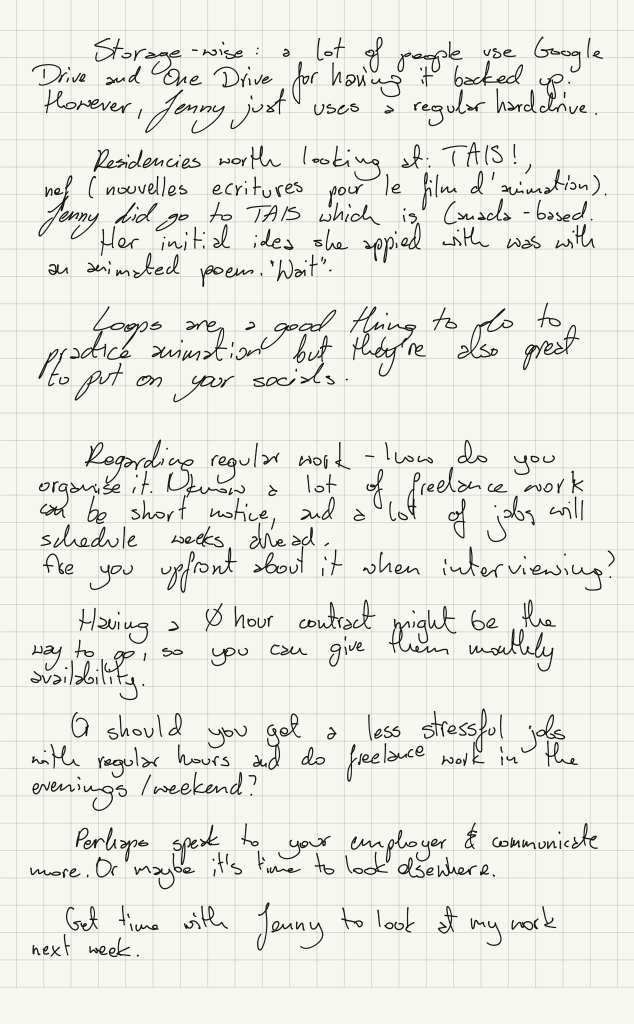 Storage-wise: a lot of people use Google
Drive and One Drive for having it backed up.
However, Jenny just uses a regular harddrive.
Residencies worth looking at: TAIS!,
nef (nouvelles ecritures pour le film d'animation).
Jenny did go to TAIS which is Canada-based.
Her initial idea she appied with was with
an animated poem. "Wait".
Loops are a good thing to do to
practice animation but they're also great
to put on your socials.
Regarding regular work - how do you
organise it. I know a lot of freelance work
can be short notice, and a lot of jobs will
schedule weeks ahead.
Are you upfront about it when interviewing?
Having a 0 hour contract might be the
way to go, so you can give them monthly
availability.
Or should you get a less stressful jobs
with regular hours and do freelance work in the
evenings/weekend?
Perhaps speak to your employer & communicate
more. Or maybe it's time to look elsewhere.
Get time with Jenny to look at my work
next week.